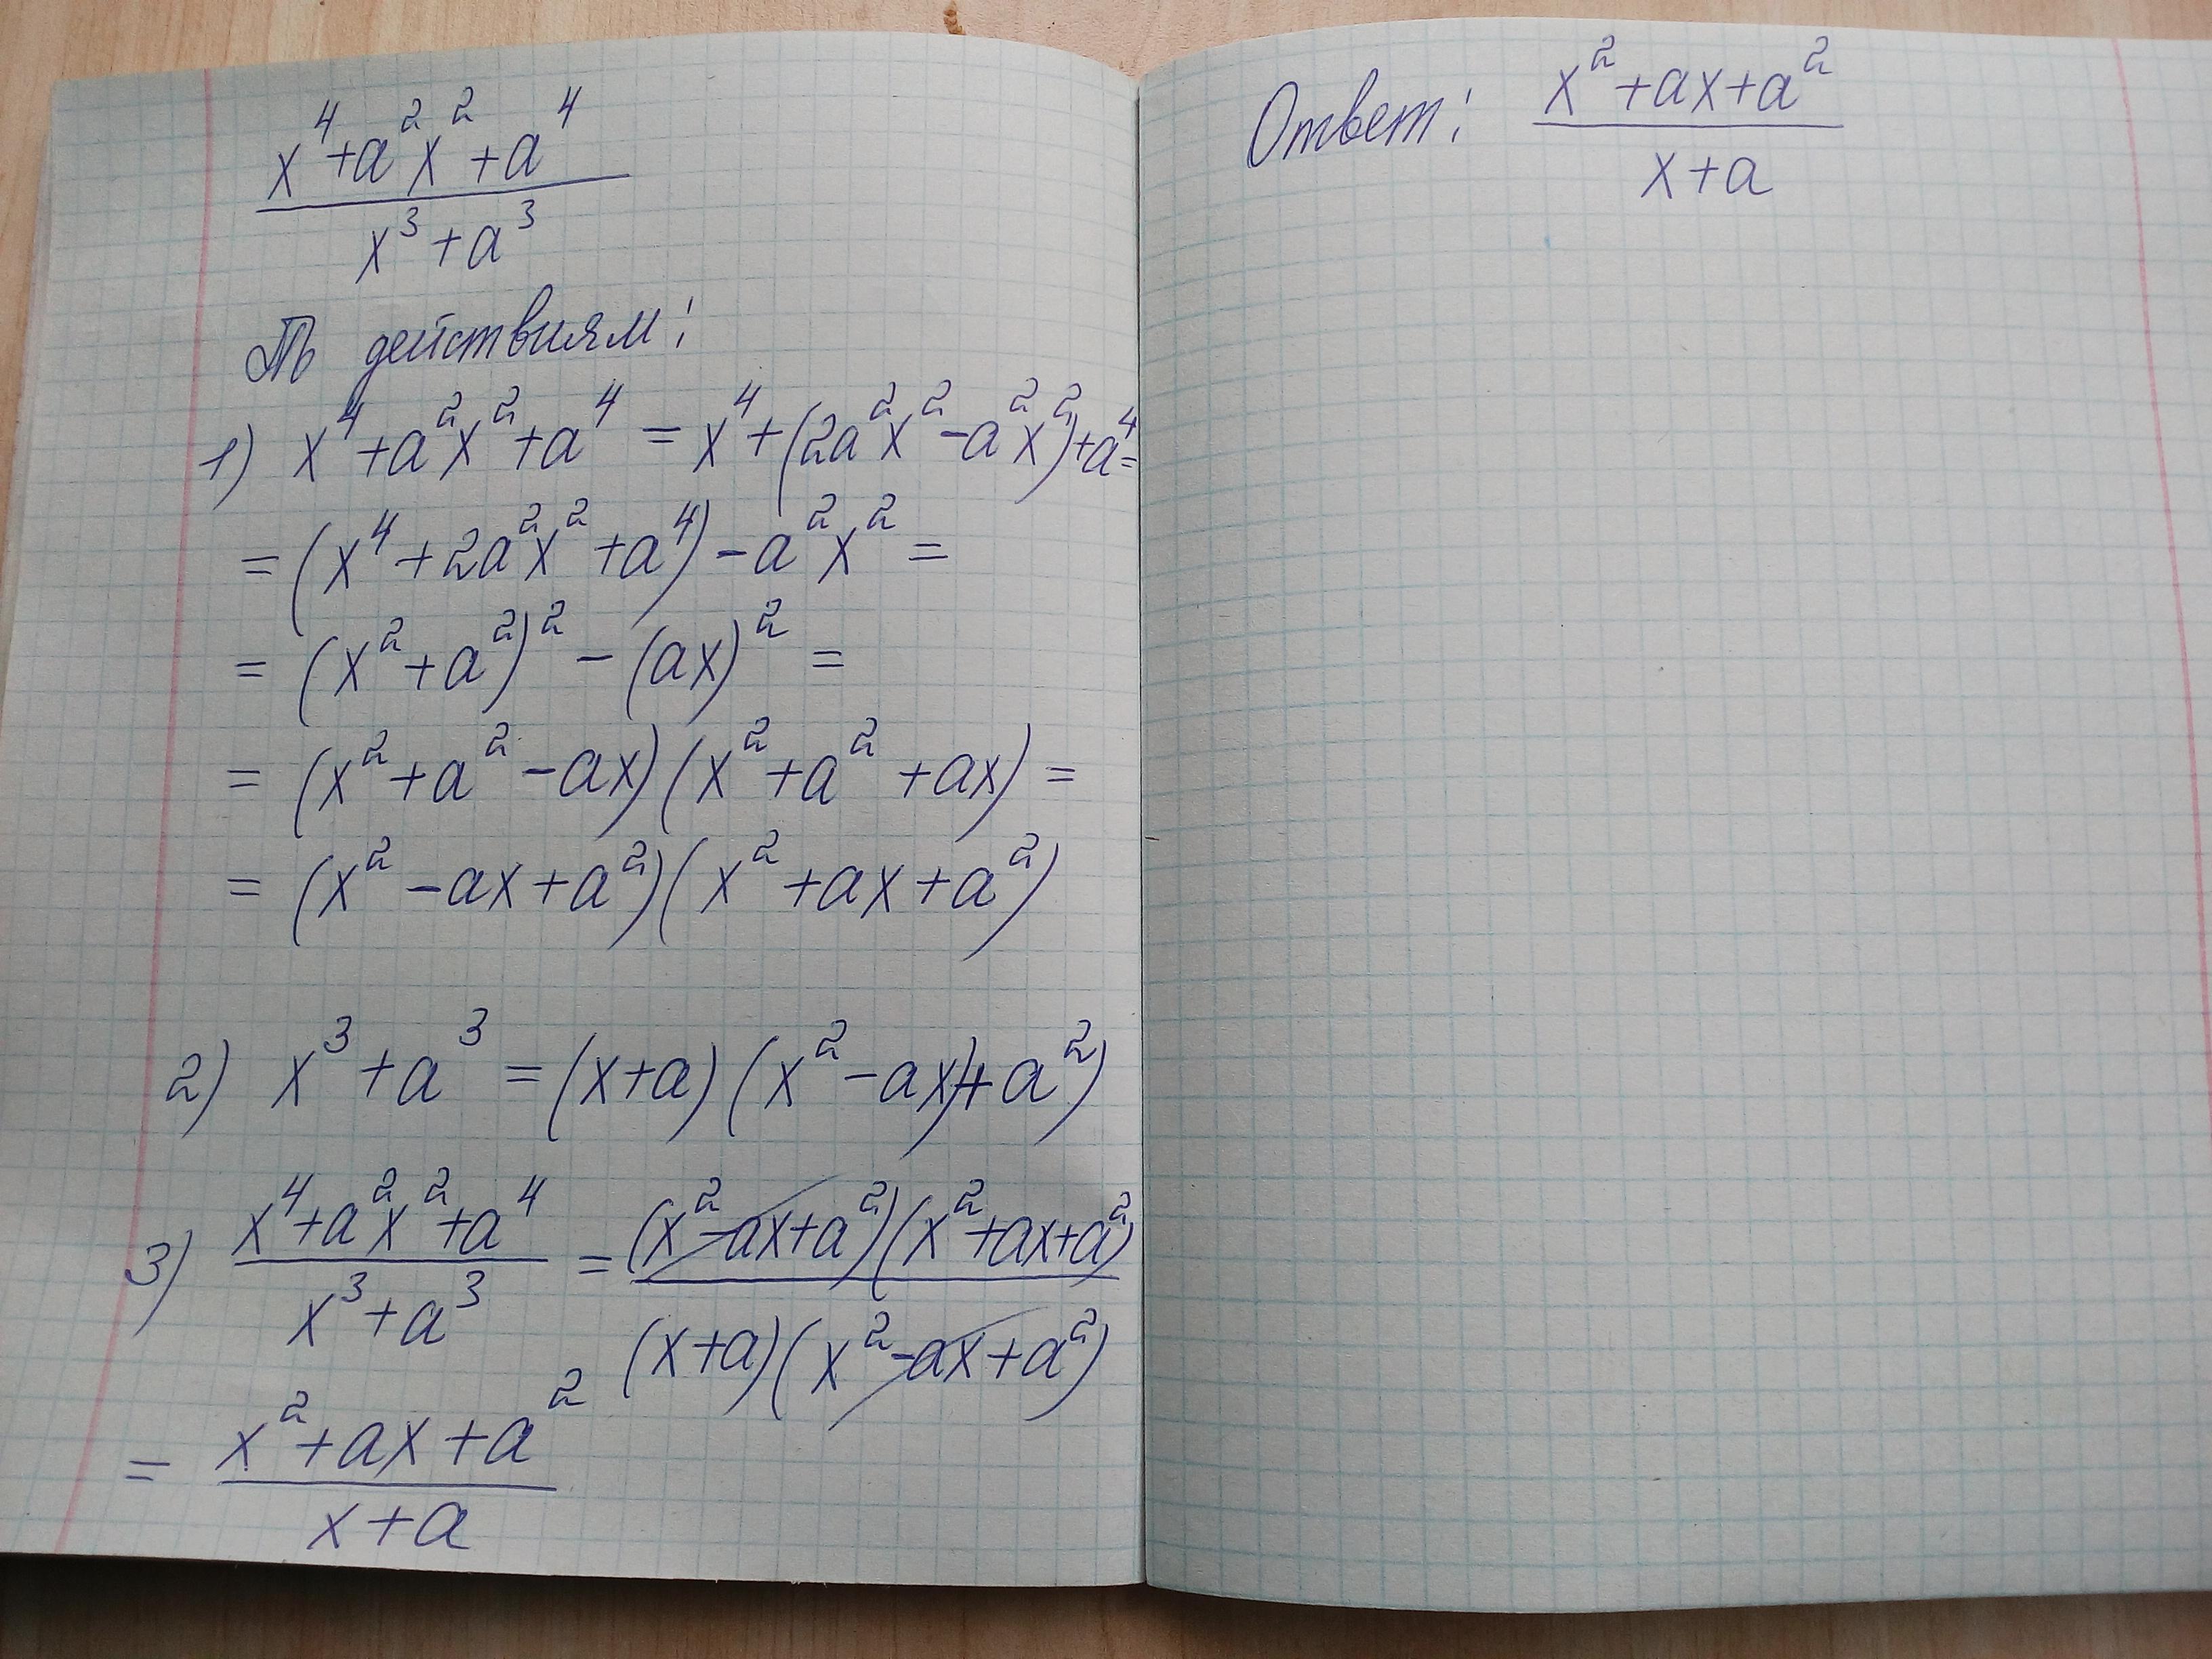 x⁴+a²x²+a⁴
x³+a³
По действиям:
1) x⁴+a²x²+a⁴ = x⁴+(2a²x²-a²x²)+a⁴=
= (x⁴+2a²x²+a⁴)-a²x² =
= (x²+a²)² - (ax)² =
= (x²+a²-ax)(x²+a²+ax) =
= (x²-ax+a²)(x²+ax+a²)
2) x³+a³ = (x+a)(x²-ax)+a²)
3) x⁴+a²x²+a⁴ = (x²-ax+a²)(x²+ax+a²)
x³+a³ (x+a)(x²-ax+a²)
= x²+ax+a²
x+a
Ответ: x²+ax+a²
x+a